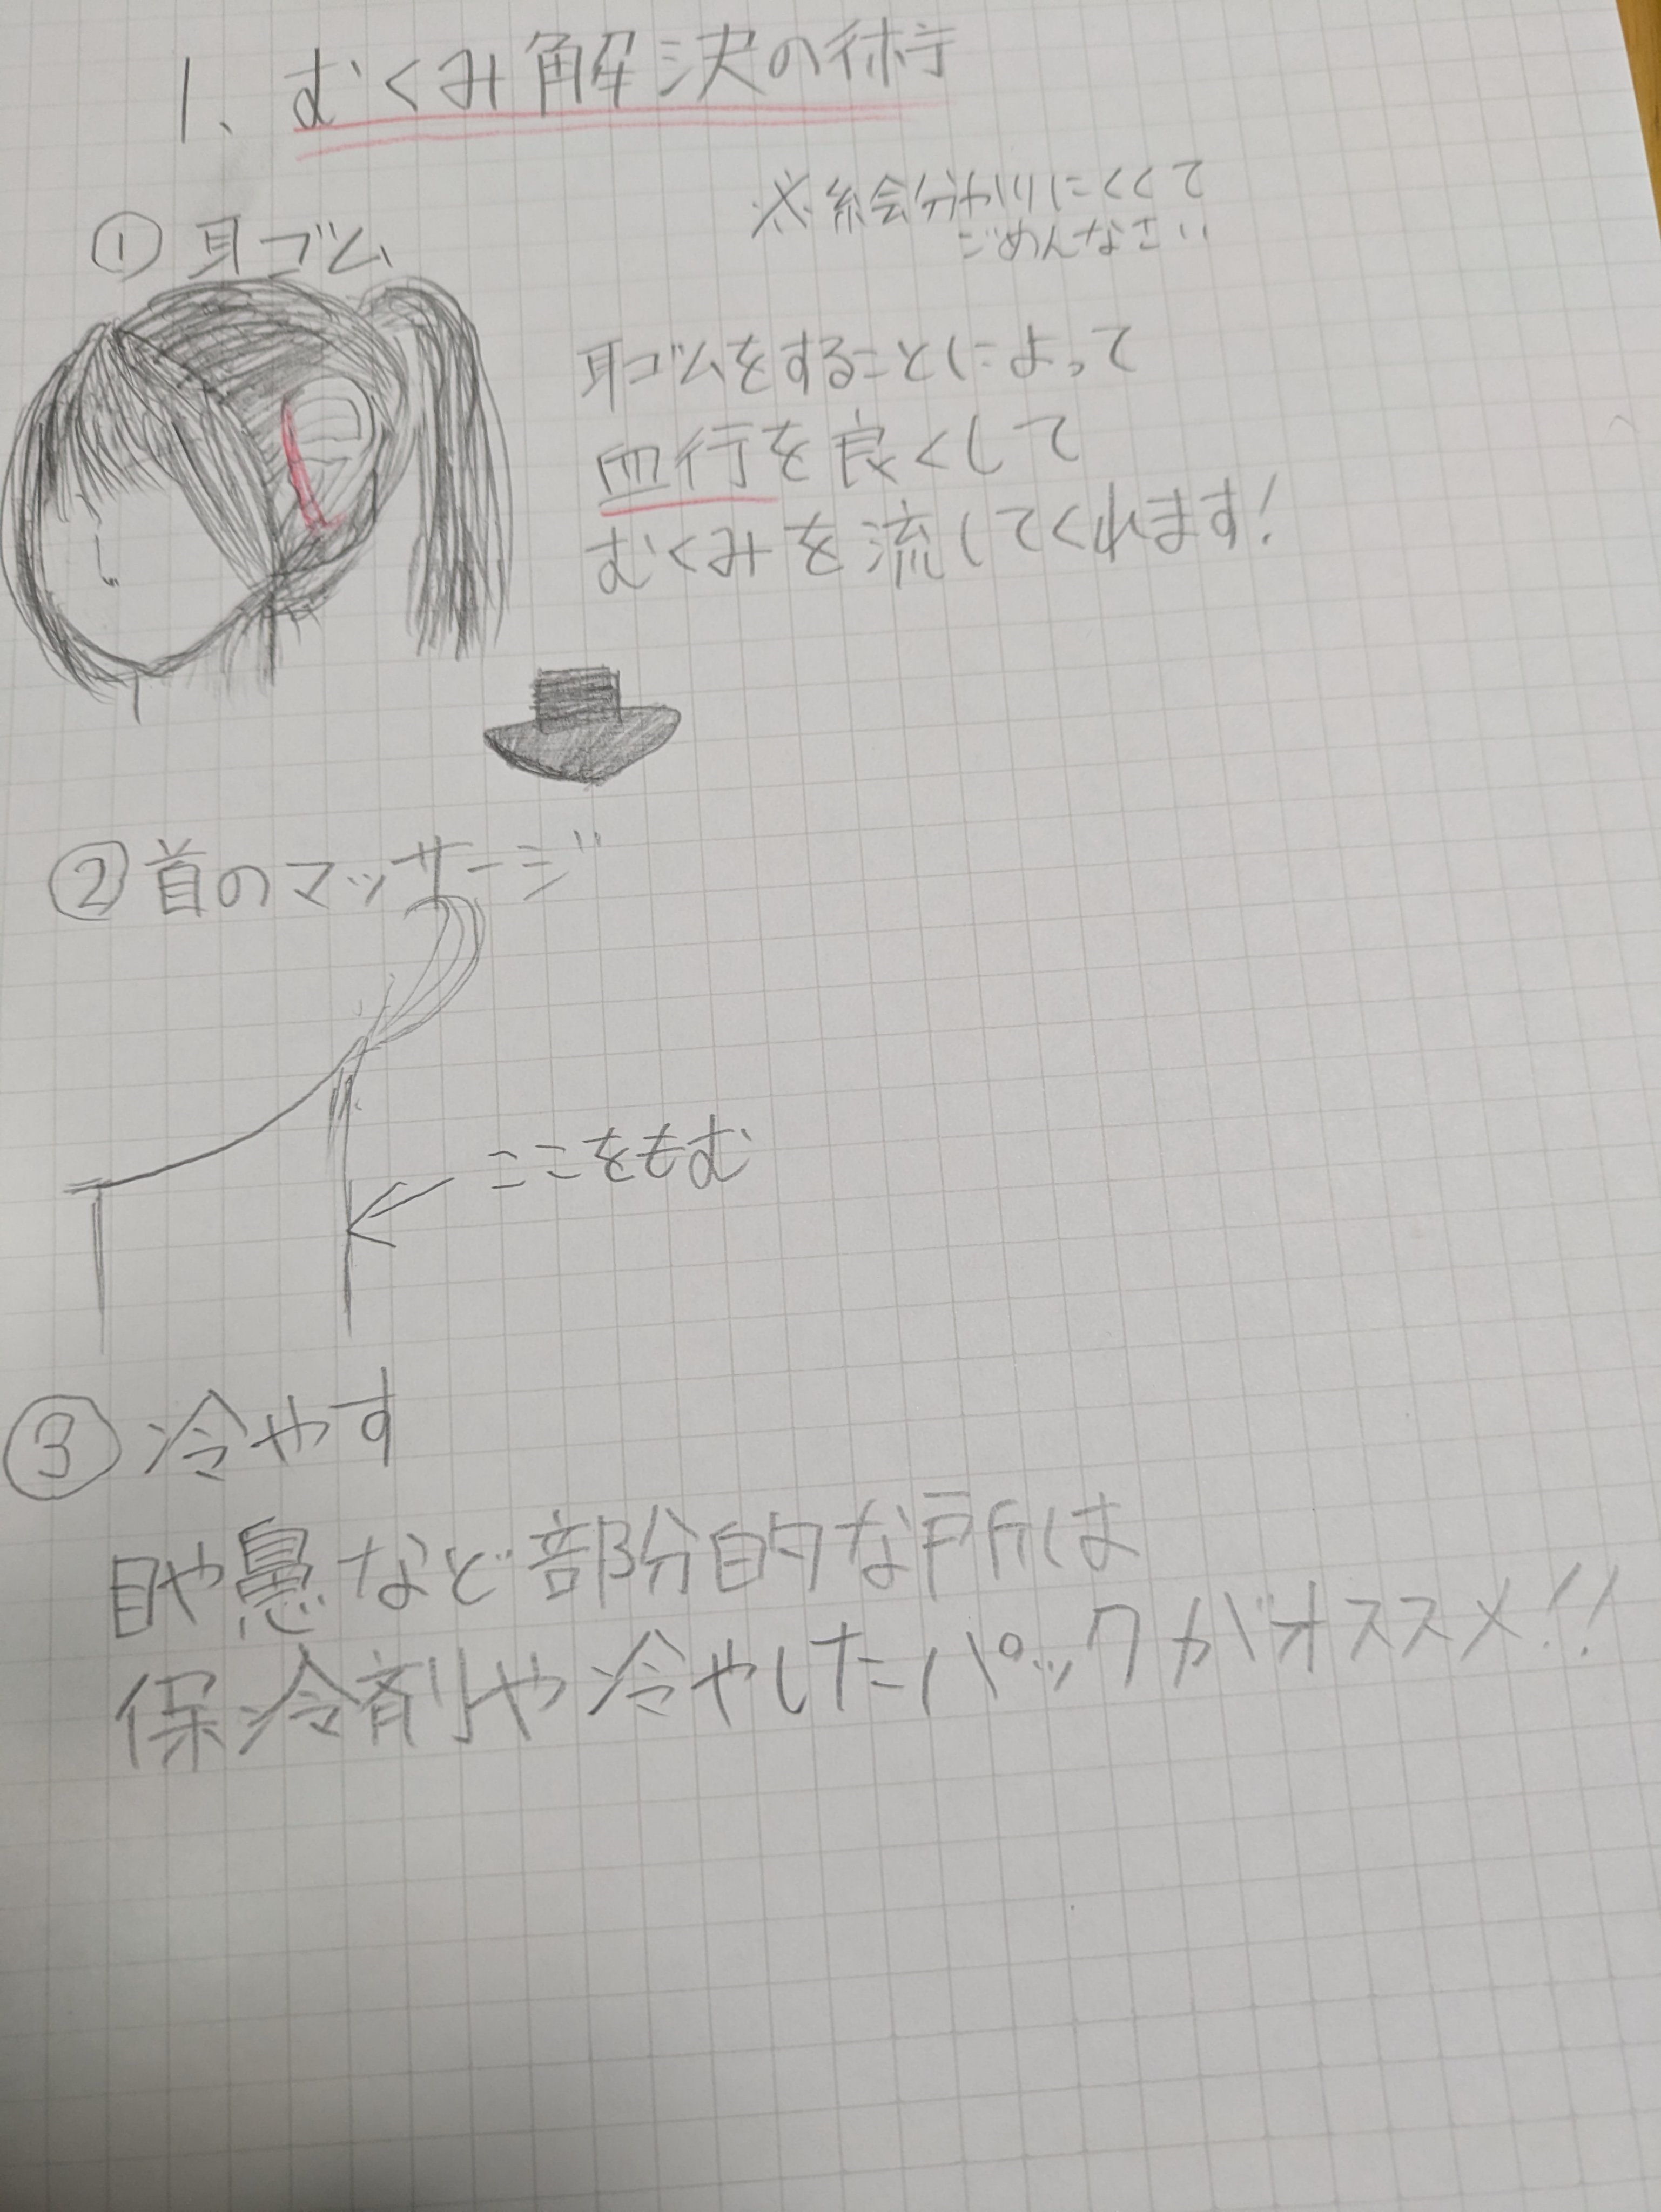 1、むくみ解決の術
※絵分かりにくくて
ごめんなさい
①耳ゴム
耳ゴムをすることによって
血行を良くして
むくみを流してくれます!
②首のマッサージ
ここをもむ
③冷やす
目や鼻など部分的な所は
保冷剤や冷やしたパックがオススメ!!